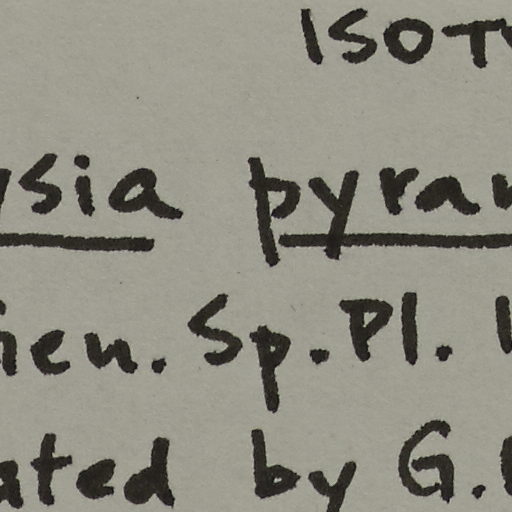 ISOTY
ysia pyram
ien. Sp. Pl. 1
ated by G.